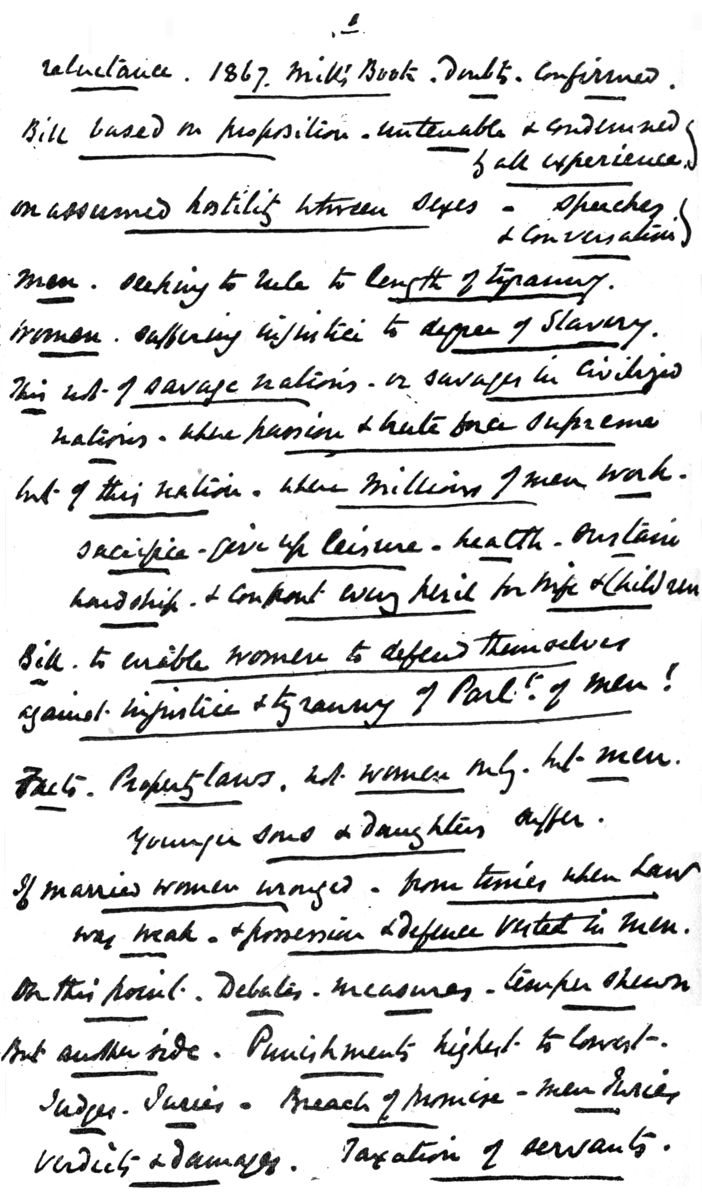 1
reluctance. 1867. Mill's Book. Doubts. Confirmed.
Bill based on proposition. untenable & condemned
by all experience.
on assumed hostility between sexes - speeches
& conversation
Men. seeking to rule to length of tyranny.
Women. suffering injustice to degree of Slavery.
This not of savage nations. or savages in civilized
nations. where passion & brute force supreme
but of this nation. where millions of men work.
sacrifice - give up leisure - health - sustain
hardship. & confront every peril for Wife & Children
Bill. to enable women to defend themselves
against injustice & tyranny of Parlt. of men!
Facts. Property laws. not women only. but men.
Younger sons & daughters suffer.
If married women wronged - from times when Law
was weak. & possession & defence vested in men.
On this point. Debates. measures - temper shewn
But another side. Punishments highest to lowest.
Judges. Juries. Breach of Promise - Men Juries
Verdicts & damages. Taxation of servants.